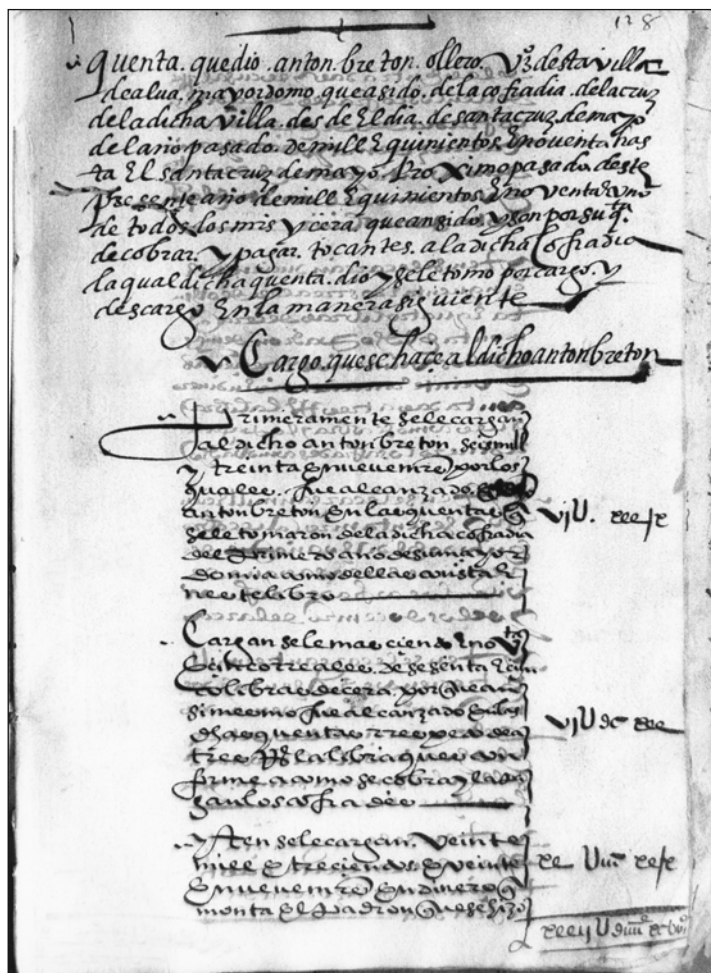 128
quenta . que dio . anton . breton . ollero . vzo desta villa
de alua . mayordomo que a sido . de la cofradia . de la cruz
de la dicha villa . des de El dia . de santa cruz de mayo
del año pasado . de mill E quinientos . E noventa has
ta El santa cruz de mayo . Proximo pasado . deste
presente año de mill E quinientos . E noventa y uno
de todos los mrs y cera . que an sido . y son por su qta
de cobrar . y pagar . tocantes . a la dicha cofradia
la qual dicha quenta . dio y se le tomo por cargo . y
descargo En la manera siguiente
Cargo . que se . haçe al dicho anton breton
Primeramente se le cargan
al dicho anton breton seis mill
y treinta e nueve mrs por los
quales . fue alcanzado
anton breton en las quentas q
se le tomaron de la dicha cofradia
del primero año de su mayor
domia como dellas consta
neste libro
Cargan se le mas ciento E nota
E quatro reales . de sesenta E cin
co libras de cera . por que an
simesmo fue alcanzado en las
dhas quentas a rrespeto de a
tres Rs la libra que es con
forme a como se cobra y la pa
gan los cofrades
yten se le cargan . veinte
mill e trecientos e veinte
e nueve mrs en dinero q
monta el padron que se hizo